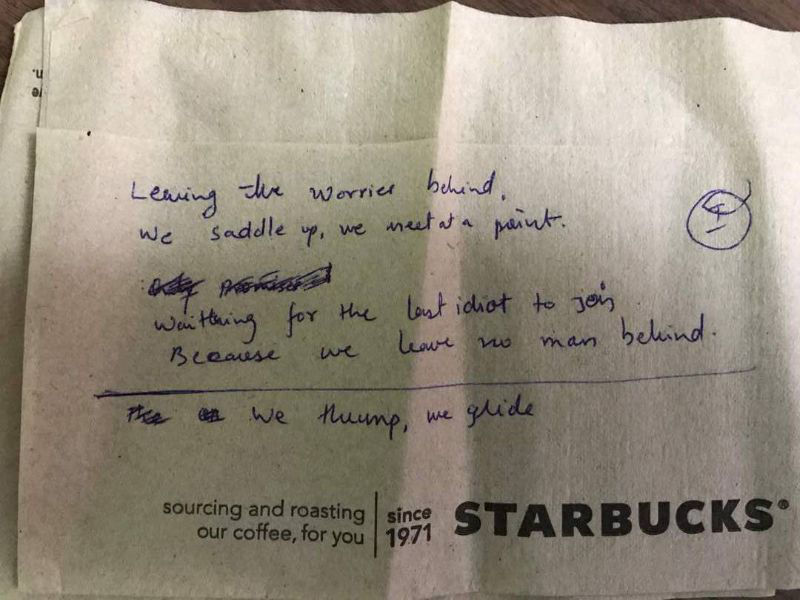 Leaving the worries behind,
We saddle up, we meet at a point.
Waithing for the last idiot to join
Because we leave no man behind.
We thump, we glide
sourcing and roasting
our coffee, for you
since
1971
STARBUCKS®